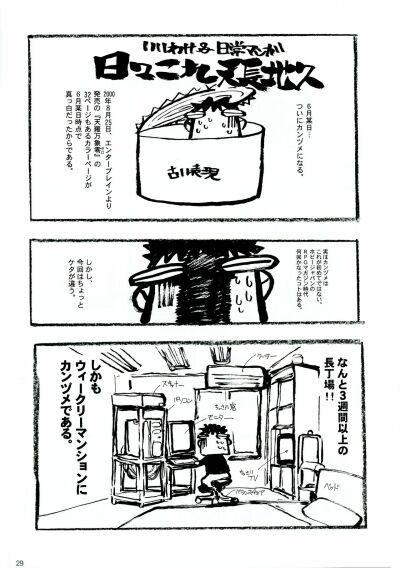 いわゆる日常マンガ
日々これ天長地久
6月某日…
ついにカンヅメになる。
2000年8月25日、エンターブレインより
発売の『天羅万象零』の
32ページもあるカラーページが
6月某日時点で
真っ白だったからである。
実はカンヅメは
これが初めてではない。
ホビージャパンの
RPGマガジン時代、
何回かなったコトはある。
しかし、
今回はちょっと
ケタが違う。
なんと3週間以上の
長丁場!!
クーラー
スキャナー
パソコン
ちっさい窓
モニター
ちっさい
TV
バランスチェア
ベッド
しかも
ウィークリーマンションに
カンヅメである。
29